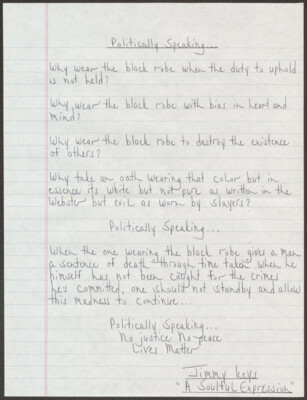 Politically Speaking...
Why wear the black robe when the duty to uphold
is not held?
Why, wear the black robe with bias in heart and
mind?
Why wear the black robe to destroy the existence
of others?
Why take an oath wearing that color but in
essence its white but not pure as written in the
Webster but evil as worn by slayers?
Politically Speaking...
When the one wearing the black robe gives a man
a sentence of death "through time taken" when he
himself has not been caught for the crimes
he's committed, one should not standby and allow
this madness to continue...
Politically Speaking...
No justice No peace
Lives Matter
Jimmy Keys
"A Soulful Expression"